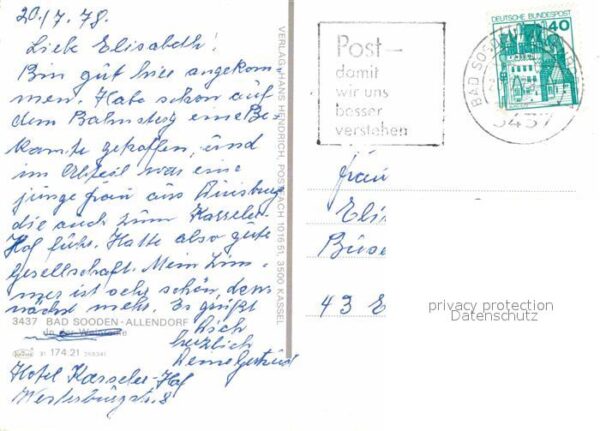 20.7.78.
Liebe Elisabeth!
Bin gut hier angekom
men. Habe schon auf
dem Bahnsteig eine Be-
kannte getroffen, und
im Abteil war eine
junge Frau aus Duisburg
die auch zum Kasseler-
Hof fuhr. Hatte also gute
Gesellschaft. Mein Zim-
mer ist sehr schön, dem-
nächst mehr. Es grüßt
Dich
herzlich
Deine Gertrud
3437 BAD SOODEN-ALLENDORF
In der
21 174:21
Hotel Kasseler-Hof
Westerburgstr. 8
VERLAG HANS HENDRICH, POSTFACH 101651, 3500 KASSEL
Post-
damit
wir uns
besser
verstehen
DEUTSCHE BUNDESPOST
40
BAD SOODEN
3437
Frau
Eli
Buse
43 E
privacy protection
Datenschutz